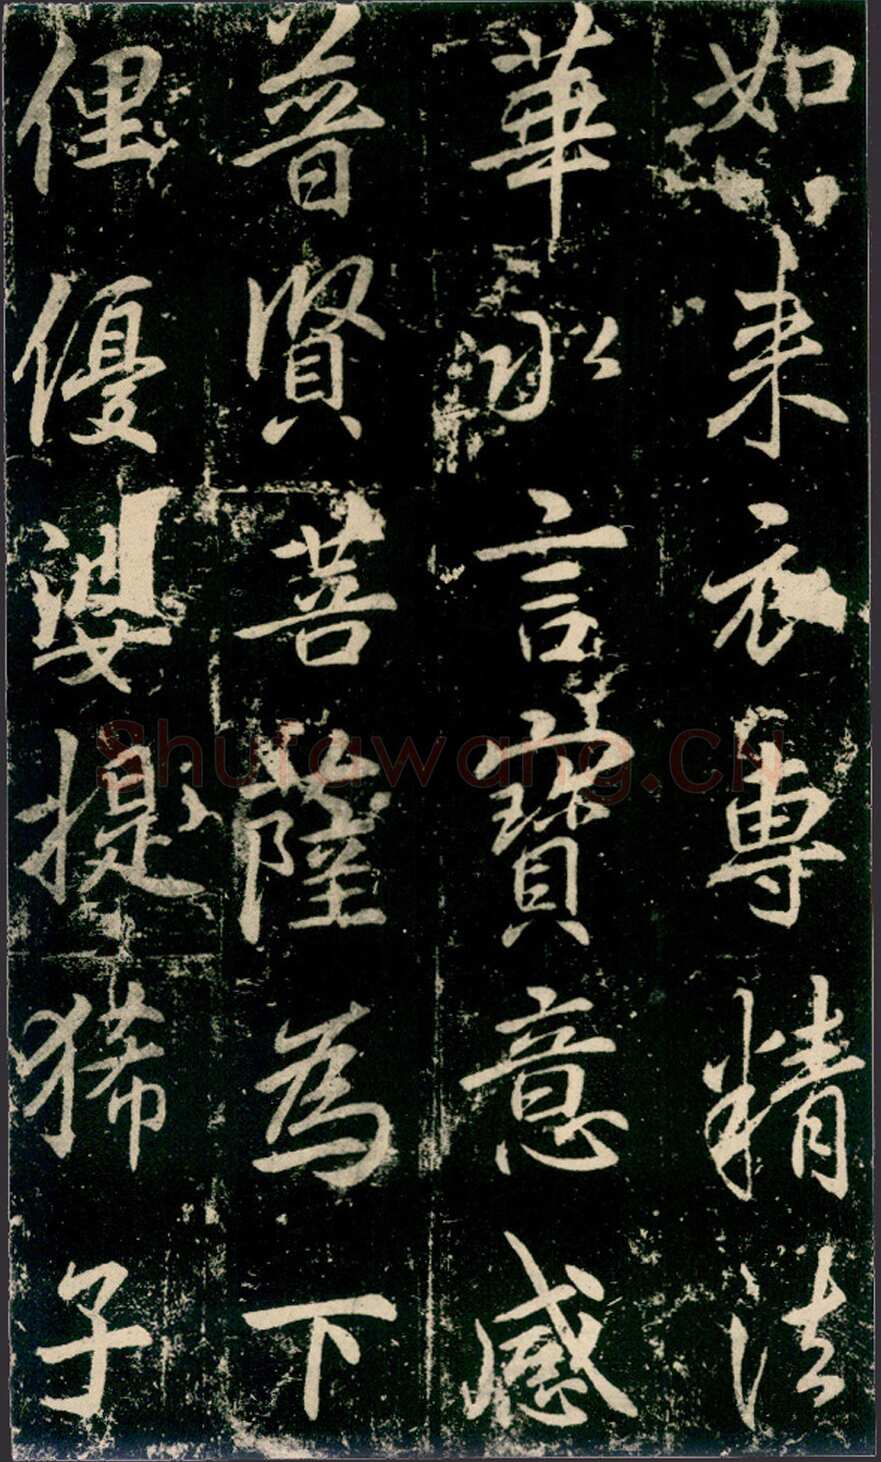 如来衣専精法
華永言寶意感
普賢菩薩為下
俚優婆提狶子
Shufawang.CN